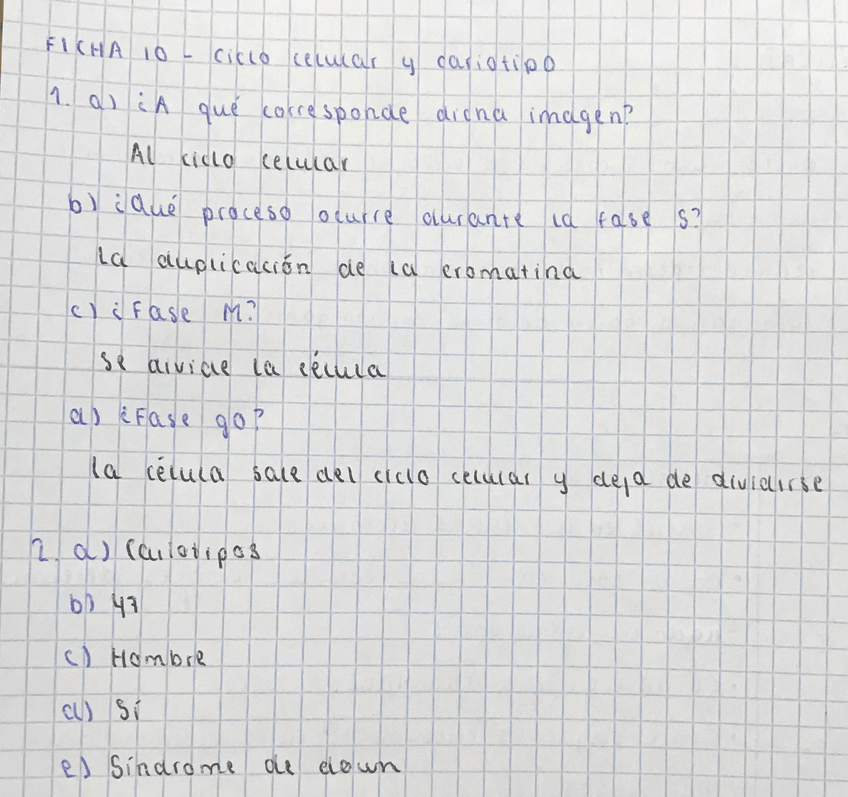 FICHA 10 - Ciclo celular y cariotipo
1. a) ¿A qué corresponde dicha imagen?
Al ciclo celular
b) ¿Qué proceso ocurre durante la fase S?
La duplicación de la cromatina
c) ¿Fase M?
Se divide la célula
d) ¿Fase g0?
La célula sale del ciclo celular y deja de dividirse
2. a)
b) 47
c) Hombre
d) Sí
e) Síndrome de down